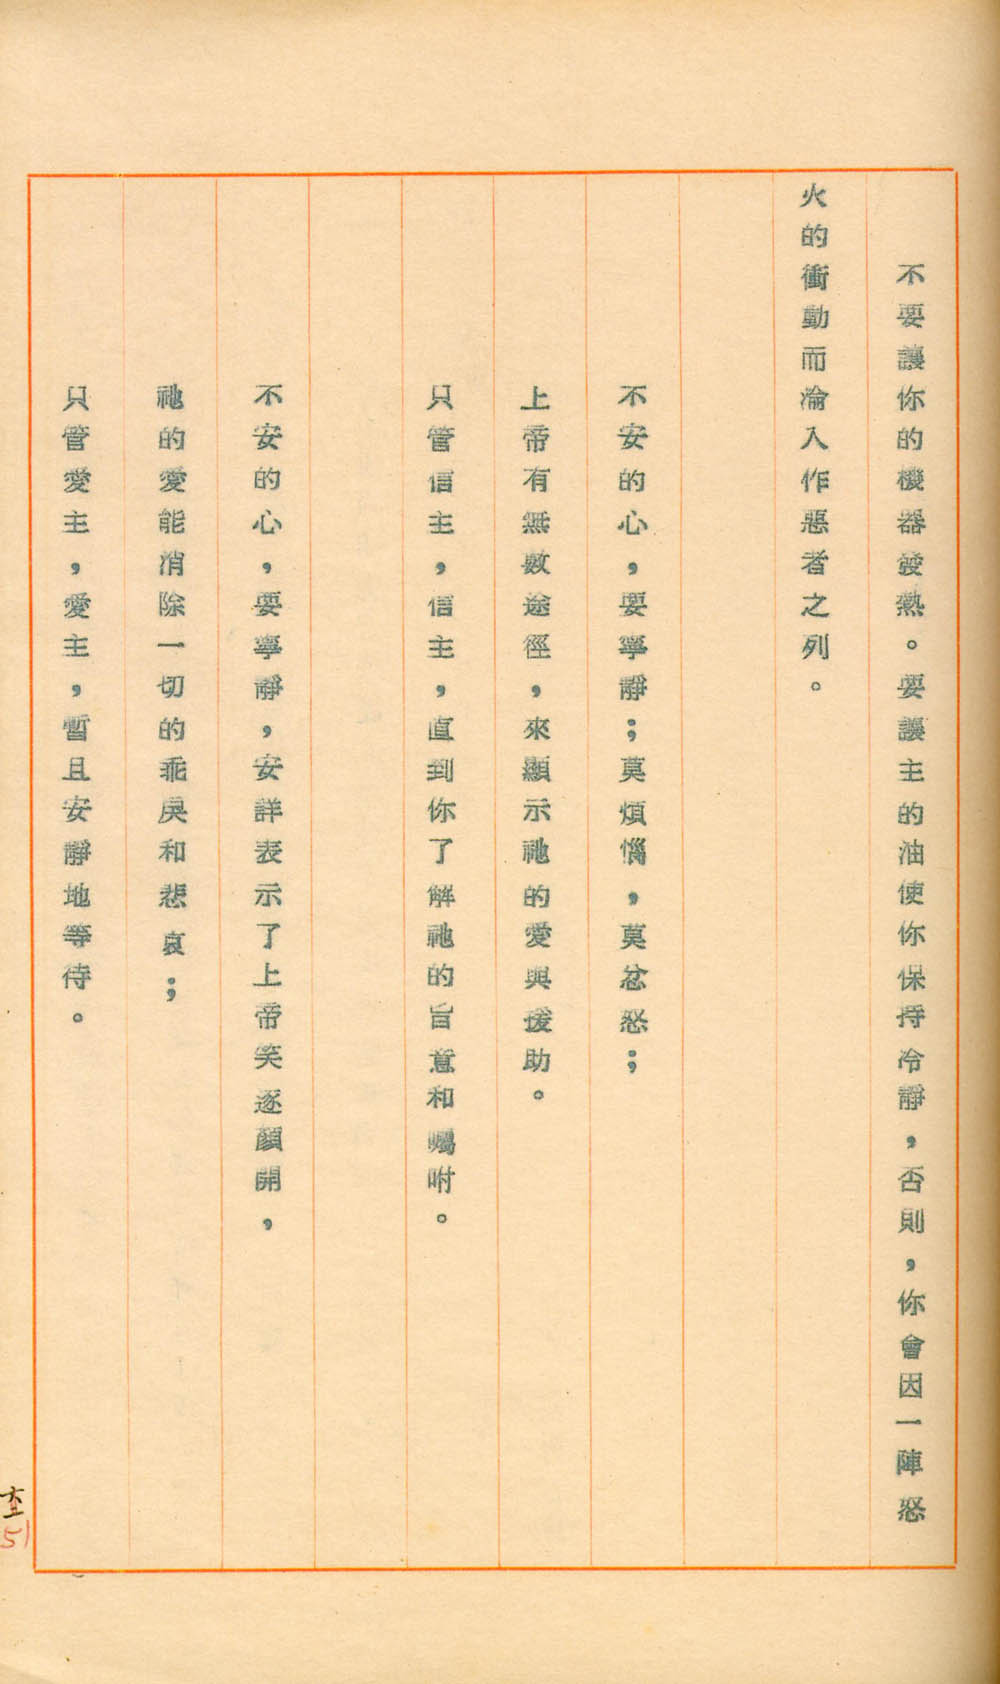 不要讓你的機器發熱。要讓主的油使你保持冷靜，否則，你會因一陣怒
火的衝動而淪入作惡者之列。
不安的心，要寧靜；莫煩惱，莫忿怒；
上帝有無數途徑，來顯示祂的愛與援助。
只管信主，信主，直到你了解祂的旨意和囑咐。
不安的心，要寧靜，安詳表示了上帝笑逐顏開，
祂的愛能消除一切的乖戾和悲哀；
只管愛主，愛主，暫且安靜地等待。
51